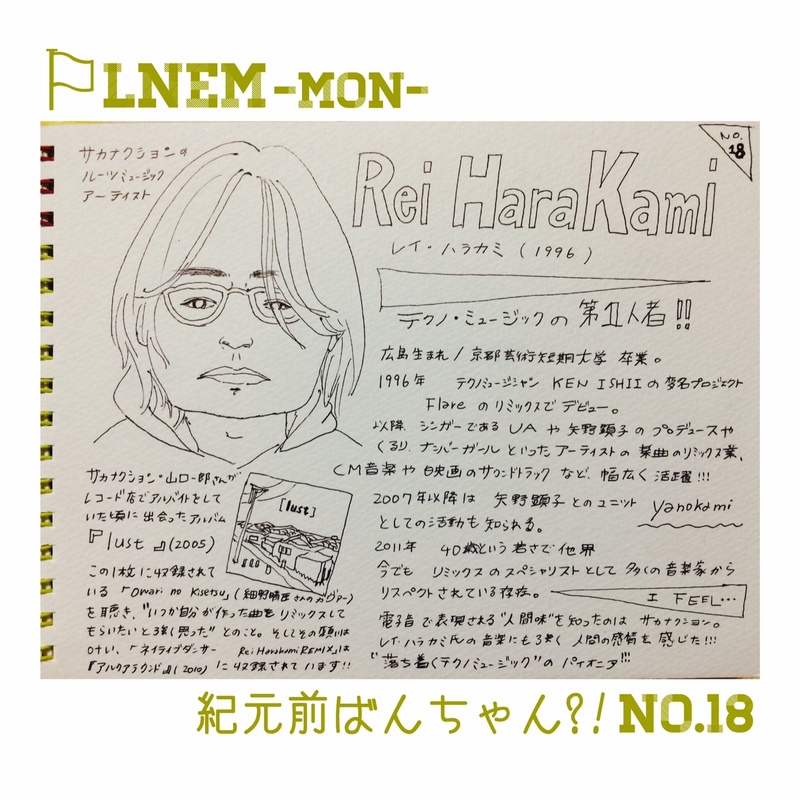 LNEM -MON-
NO.
18
サカナクションの
ルーツミュージック
アーティスト
Rei HaraKami
レイ・ハラカミ (1996)
テクノ・ミュージックの 第1人者!!
広島生まれ / 京都芸術短期大学 卒業。
1996年 テクノミュージシャン KEN ISHIIの変名プロジェクト
Flare のリミックスで デビュー。
以降 シンガーである UA や 矢野顕子 のプロデュースや
くるり、ナンバーガール といったアーティストの 楽曲のリミックス業、
CM音楽や 映画のサウンドトラック など、幅広く 活躍!!!
2007年以降は 矢野顕子 とのユニット yanokami
としての活動も知られる。
2011年 40歳という若さで他界
今でも リミックスのスペシャリストとして 多くの音楽家から
リスペクトされている存在。
I FEEL…
電子音で表現される"人間味"を知ったのは サカナクション。
レイ・ハラカミ氏の音楽にも強く 人間の感情を感じた!!!
"落ち着くテクノミュージック"の パイオニア!!!
サカナクション・山口一郎さんが
レコード店でアルバイトをして
いた頃に出会ったアルバム
『lust』(2005)
[lust]
この1枚に収録されて
いる 「Owari no Kisetsu」(細野晴臣さんのカヴァー)
を聴き、"いつか自分が作った曲をリミックスして
もらいたいと強く思った" とのこと。そしてその願いは
叶い、「ネイティブダンサー Rei Harakami REMIX」は
『アルクアラウンド』(2010) に収録されています!!
紀元前ばんちゃん?! NO.18